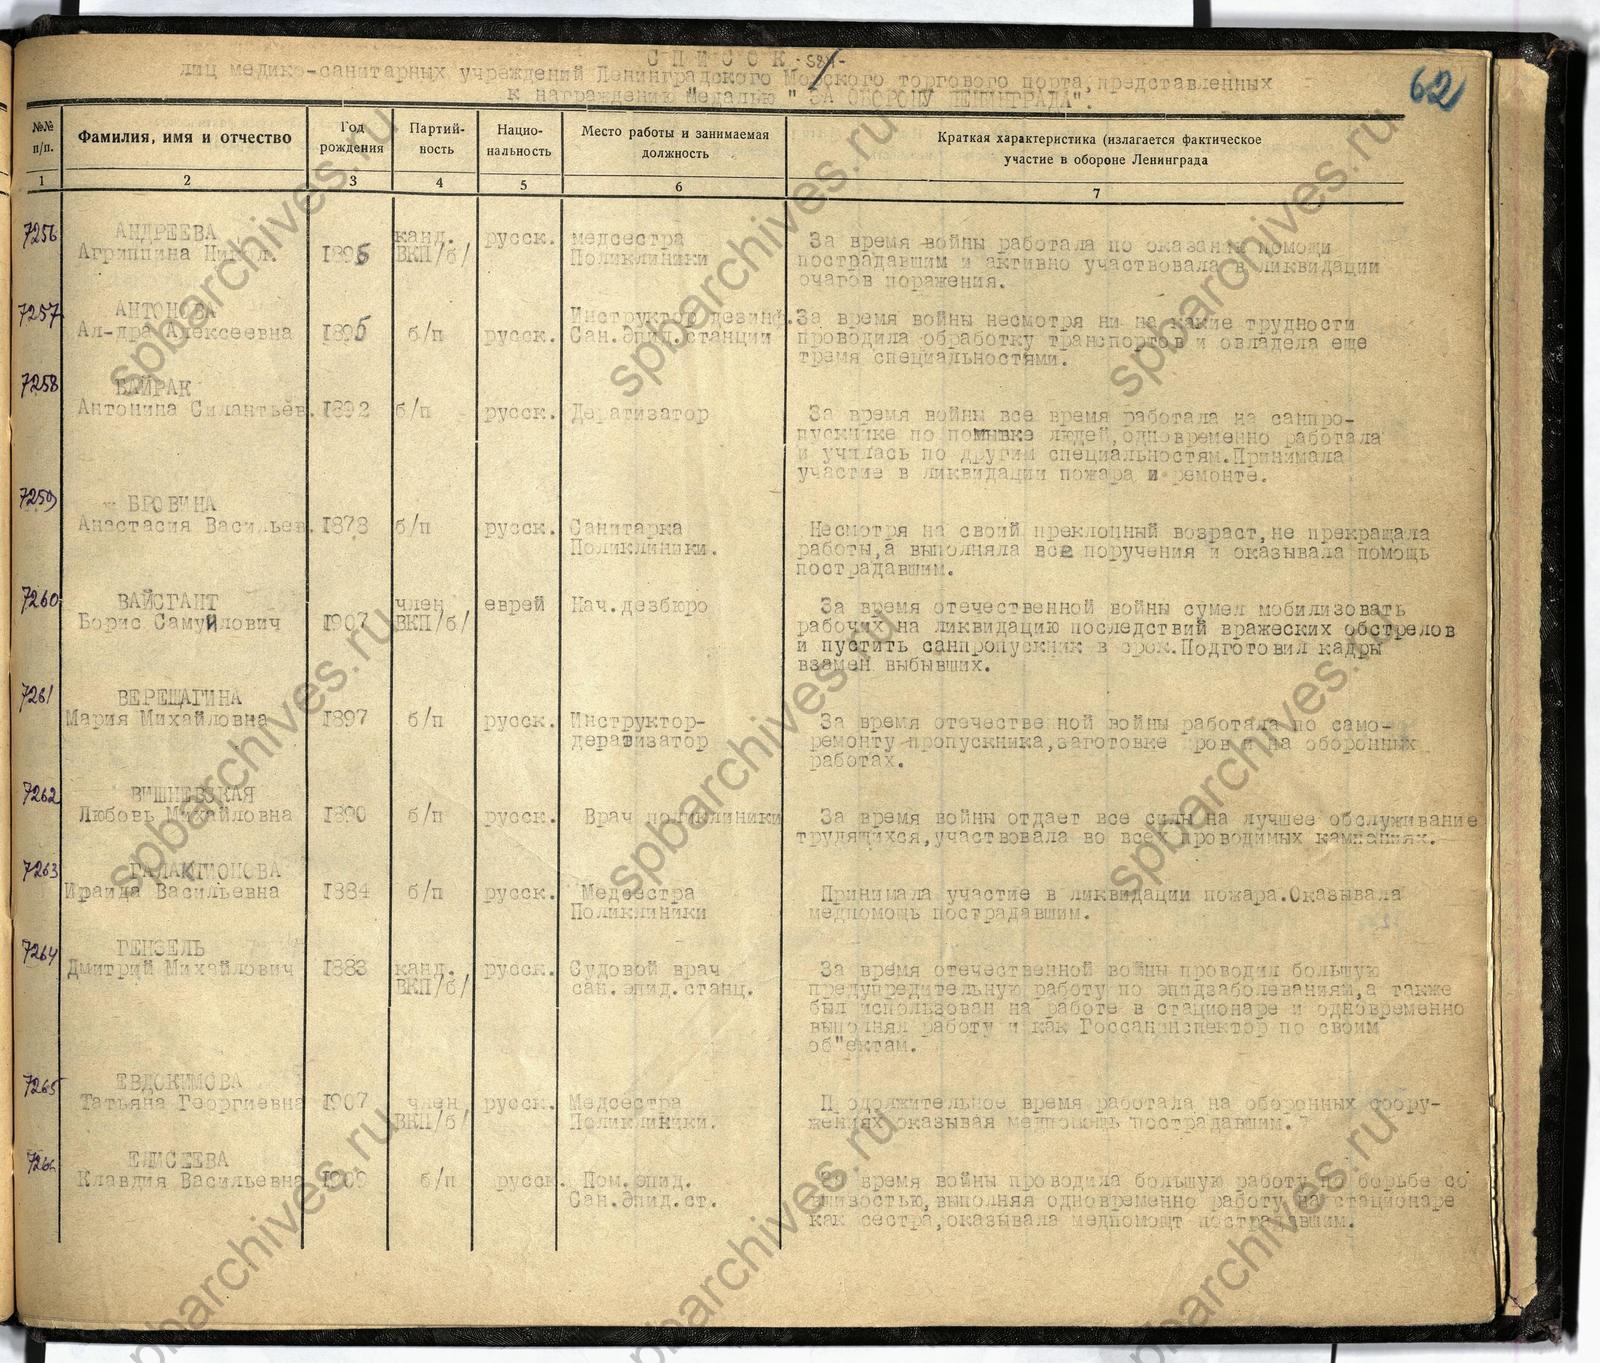 С П И С О К
лиц медико-санитарных учреждений Ленинградского Морского торгового порта, представленных
к награждению Медалью " ЗА ОБОРОНУ ЛЕНИНГРАДА".
62
№№ п/п. Фамилия, имя и отчество Год рождения Партий-ность Нацио-нальность Место работы и занимаемая должность Краткая характеристика (излагается фактическое участие в обороне Ленинграда
1 2 3 4 5 6 7
7256 АНДРЕЕВА канд. русск. медсестра За время войны работала по оказанию помощи
Агриппина Никол. 1895 ВКП/б/ Поликлиники пострадавшим и активно участвовала в ликвидации
очагов поражения.
7257 АНТОНОВА Инструктор дезинф. За время войны несмотря ни на какие трудности
Ал-дра Алексеевна 1895 б/п русск. Сан.Эпид.станции проводила обработку транспортов и овладела еще
тремя специальностями.
7258 БАЙРАК
Антонина Силантьёв. 1892 б/п русск. Дератизатор За время войны все время работала на санпро-
пускнике по помывке людей,одновременно работала
и училась по другим специальностям.Принимала
участие в ликвидации пожара и ремонте.
7259 БРОВИНА
Анастасия Васильев. 1878 б/п русск. Санитарка Несмотря на своий преклонный возраст,не прекращала
Поликлиники. работы,а выполняла все поручения и оказывала помощь
пострадавшим.
7260 ВАЙСГАНТ член еврей Нач.дезбюро За время отечественной войны сумел мобилизовать
Борис Самуйлович 1907 ВКП/б/ рабочих на ликвидацию последствий вражеских обстрелов
и пустить санпропускник в срок.Подготовил кадры
взамен выбывших.
7261 ВЕРЕЩАГИНА
Мария Михайловна 1897 б/п русск. Инструктор- За время отечестве ной войны работала по само-
дератизатор ремонту пропускника,заготовке ров и на оборонных
работах.
7262 ВИШНЕВСКАЯ
Любовь Михайловна 1890 б/п русск. Врач поликлиники За время войны отдает все силы на лучшее обслуживание
трудящихся,участвовала во всех проводимых кампаниях.
7263 ГАЛАКТИОНОВА
Ираида Васильевна 1884 б/п русск. Медсестра Принимала участие в ликвидации пожара.Оказывала
Поликлиники медпомощь пострадавшим.
7264 ГЕНЗЕЛЬ
Дмитрий Михайлович 1883 канд. русск. Судовой врач За время отечественной войны проводил большую
ВКП/б/ сан.эпид.станц. предупредительную работу по эпидзаболеваниям,а также
был использован на работе в стационаре и одновременно
выполнял работу и как Госсанинспектор по своим
об"ектам.
7265 ЕВДОКИМОВА
Татьяна Георгиевна 1907 член русск. Медсестра Продолжительное время работала на оборонных соору-
ВКП/б/ Поликлиники. жениях оказывая медпомощь пострадавшим.
7266 ЕЛИСЕЕВА
Клавдия Васильевна б/п русск. Пом.эпид. За время войны проводила большую работу по борьбе со
Сан.Эпид.ст. вшивостью,выполняя одновременно работу на стационаре
как сестра,оказывала медпомощт пострадавшим.
spbarchives.ru
spbarchives.ru
spbarchives.ru
spbarchives.ru
spbarchives.ru
spbarchives.ru
spbarchives.ru
spbarchives.ru
spbarchives.ru